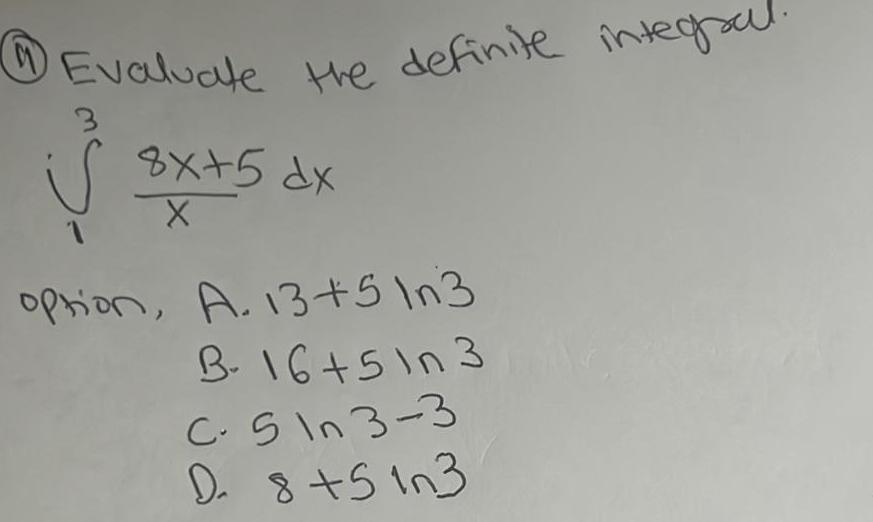 11 Evaluate the definite integral.
3
∫ 8x+5 dx
x
1
option, A. 13+5 ln3
B. 16+5 ln 3
C. 5 ln 3-3
D. 8+5 ln3